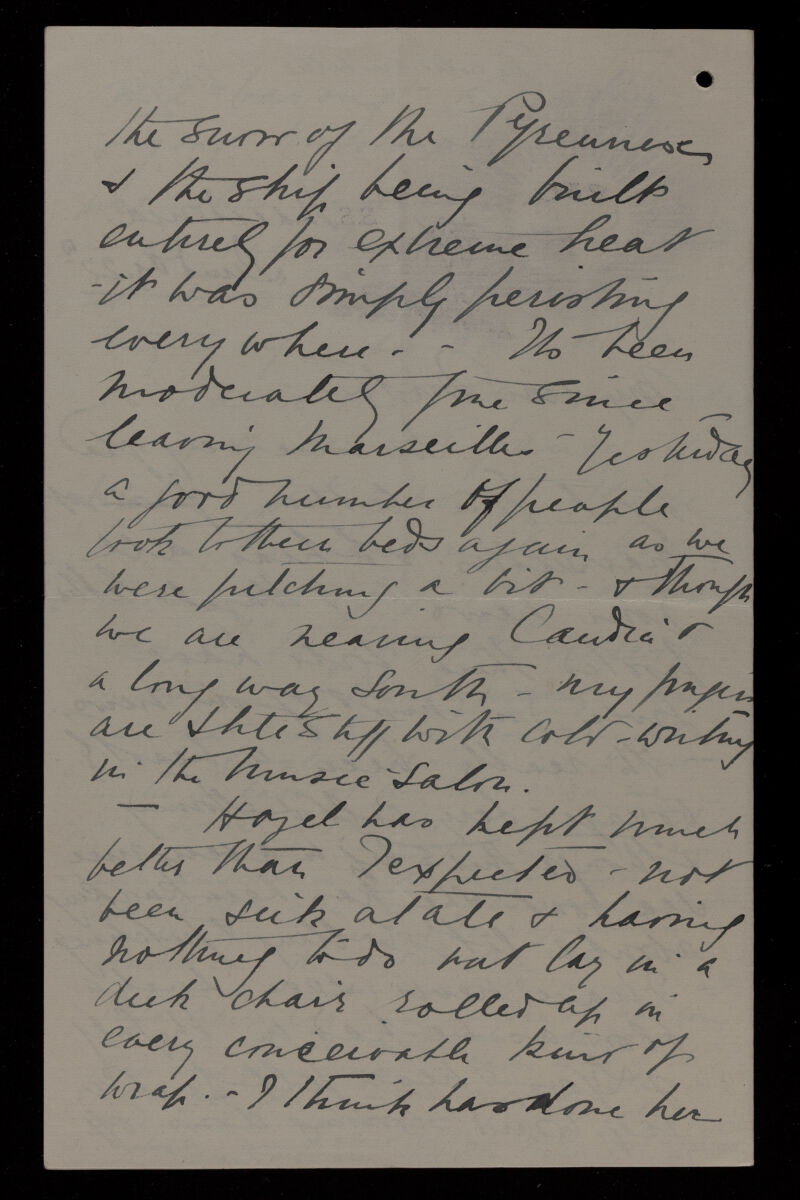 the snow of the Pyrennees
& the ship being built
entirely for extreme heat
- it was simply perishing
everywhere. - Its been
moderately fine since
leaving Marseilles - Yesterday
a good number of people
took to their beds again as we
were pitching a bit - & though
we are nearing Candia &
a long way South - my fingers
are still stiff with cold - writing
in the music salon.
- Hazel has kept much
better than I expected - not
been sick at all & having
nothing to do but lay in a
deck chair rolled up in
every conceivable kind of
wrap. - I think has done her